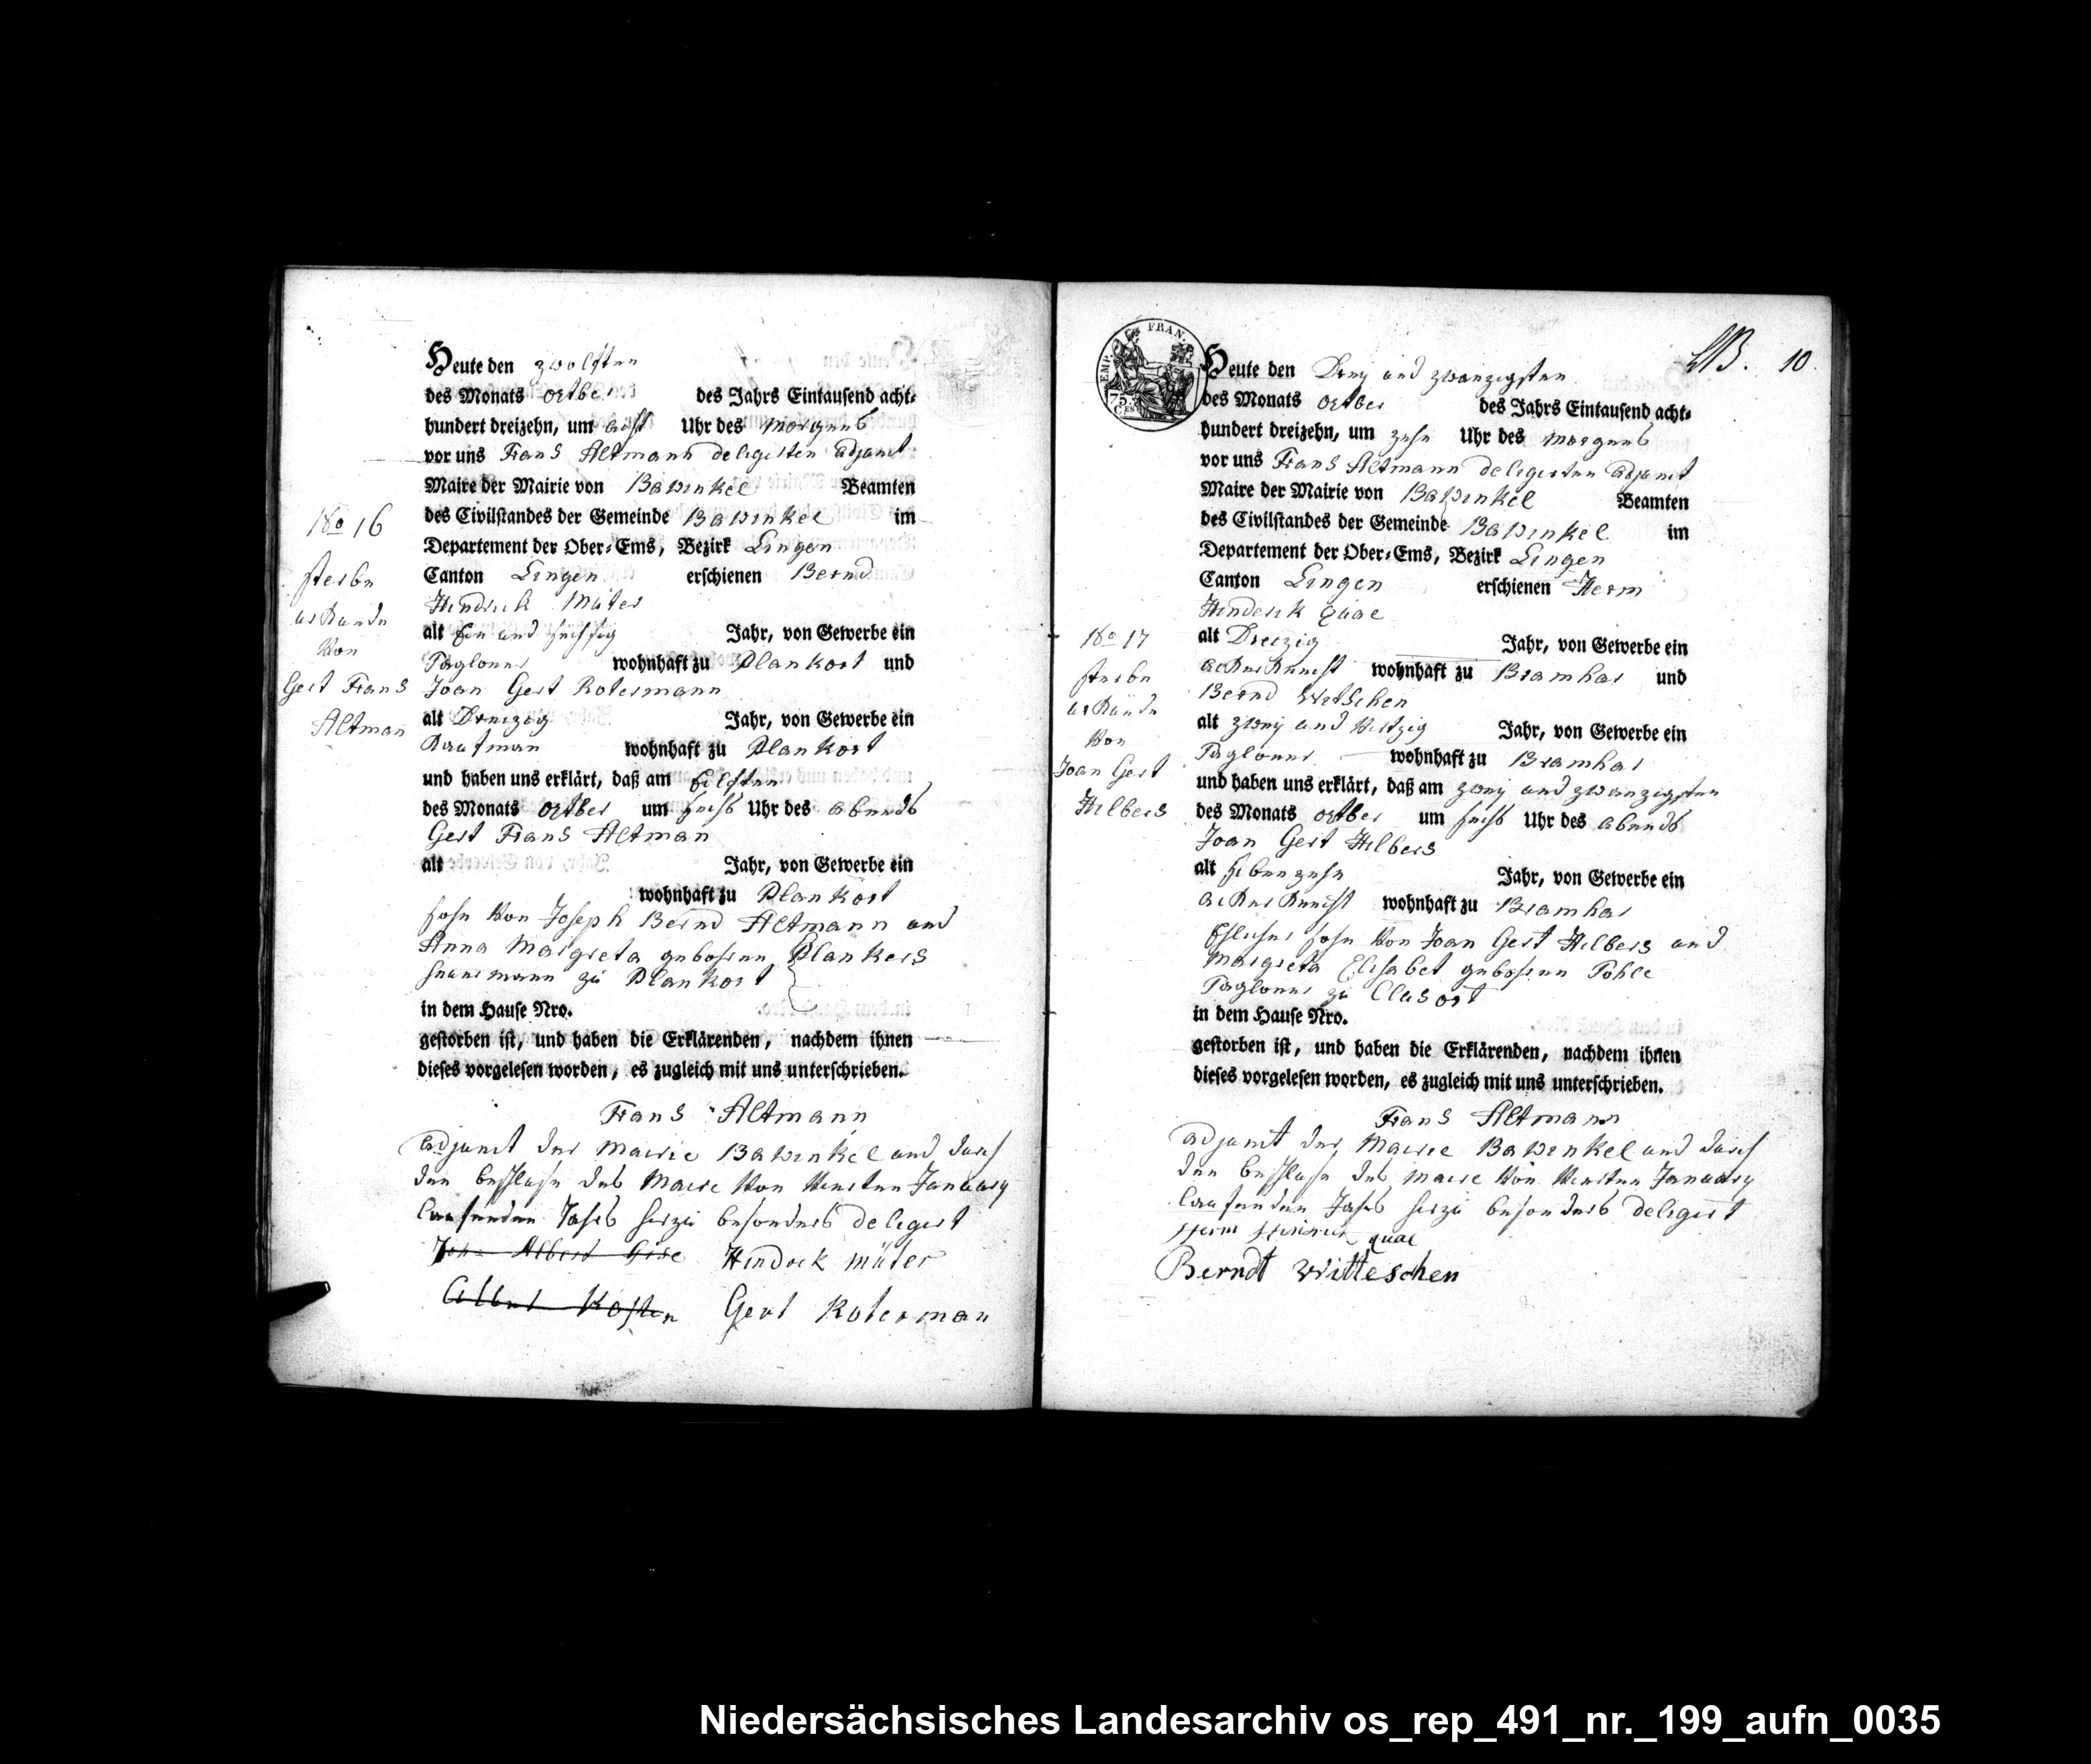 Heute den zwolften
des Monats octber des Jahrs Eintausend acht-
hundert dreizehn, um acht Uhr des Morgens
vor uns Frans Altmann delegirten adjunct
Maire der Mairie von Bawinkel Beamten
des Civilstandes der Gemeinde Bawinkel im
Departement der Ober-Ems, Bezirk Lingen
Canton Lingen erschienen Bernd
Hindrick Müter
alt Ein und sechsig Jahr, von Gewerbe ein
Taglöner wohnhaft zu Plankort und
Joan Gert Rotermann
alt Dreizig Jahr, von Gewerbe ein
Kaufman wohnhaft zu Plankort
und haben uns erklärt, daß am Eilften
des Monats octber um sechs Uhr des abends
Gert Frans Altman
alt Jahr, von Gewerbe ein
wohnhaft zu Plankort
sohn Von Joseph Bernd Altmann und
Anna Margreta gebohren Plankers
heuermann zu Plankort
in dem Hause Nro.
gestorben ist, und haben die Erklärenden, nachdem ihnen
dieses vorgelesen worden, es zugleich mit uns unterschrieben.
Frans Altmann
adjunct der Mairie Bawinkel und durch
den beschluss des Maire Von Viersten January
laufenden Jahrs hierzu besonders delegirt
John Albert Gise Hindrick müter
Albert Koster Gert Roterman
No 16
sterbe
urkunde
Von
Gert Frans
Altman
LB. 10.
EMP. FRAN.
75.
Heute den Drey und zwanzigsten
des Monats octber des Jahrs Eintausend acht-
hundert dreizehn, um zehn Uhr des Morgens
vor uns Frans Altmann delegirten adjunct
Maire der Mairie von Bawinkel Beamten
des Civilstandes der Gemeinde Bawinkel im
Departement der Ober-Ems, Bezirk Lingen
Canton Lingen erschienen Herm
Hinderk Quae
alt Dreizig Jahr, von Gewerbe ein
ackerknecht wohnhaft zu Bramhar und
Bernd Wetschen
alt zwey und Viertzig Jahr, von Gewerbe ein
Taglöner wohnhaft zu Bramhar
und haben uns erklärt, daß am zwey und zwanzigsten
des Monats octber um sechs Uhr des abends
Joan Gert Hilbers
alt siebenzehn Jahr, von Gewerbe ein
ackerknecht wohnhaft zu Bramhar
Ehlicher sohn Von Joan Gert Hilbers und
Margreta Elisabet gebohren Pohle
Taglöner zu Clusort
in dem Hause Nro.
gestorben ist, und haben die Erklärenden, nachdem ihnen
dieses vorgelesen worden, es zugleich mit uns unterschrieben.
Frans Altmann
adjunct der Mairie Bawinkel und durch
den beschluss des Maire Von Viersten January
laufenden Jahrs hierzu besonders delegirt
Herm Heinrich quae
Berndt Witteschen
No 17
sterbe
urkunde
Von
Joan Gert
Hilbers
Niedersächsisches Landesarchiv os_rep_491_nr._199_aufn_0035